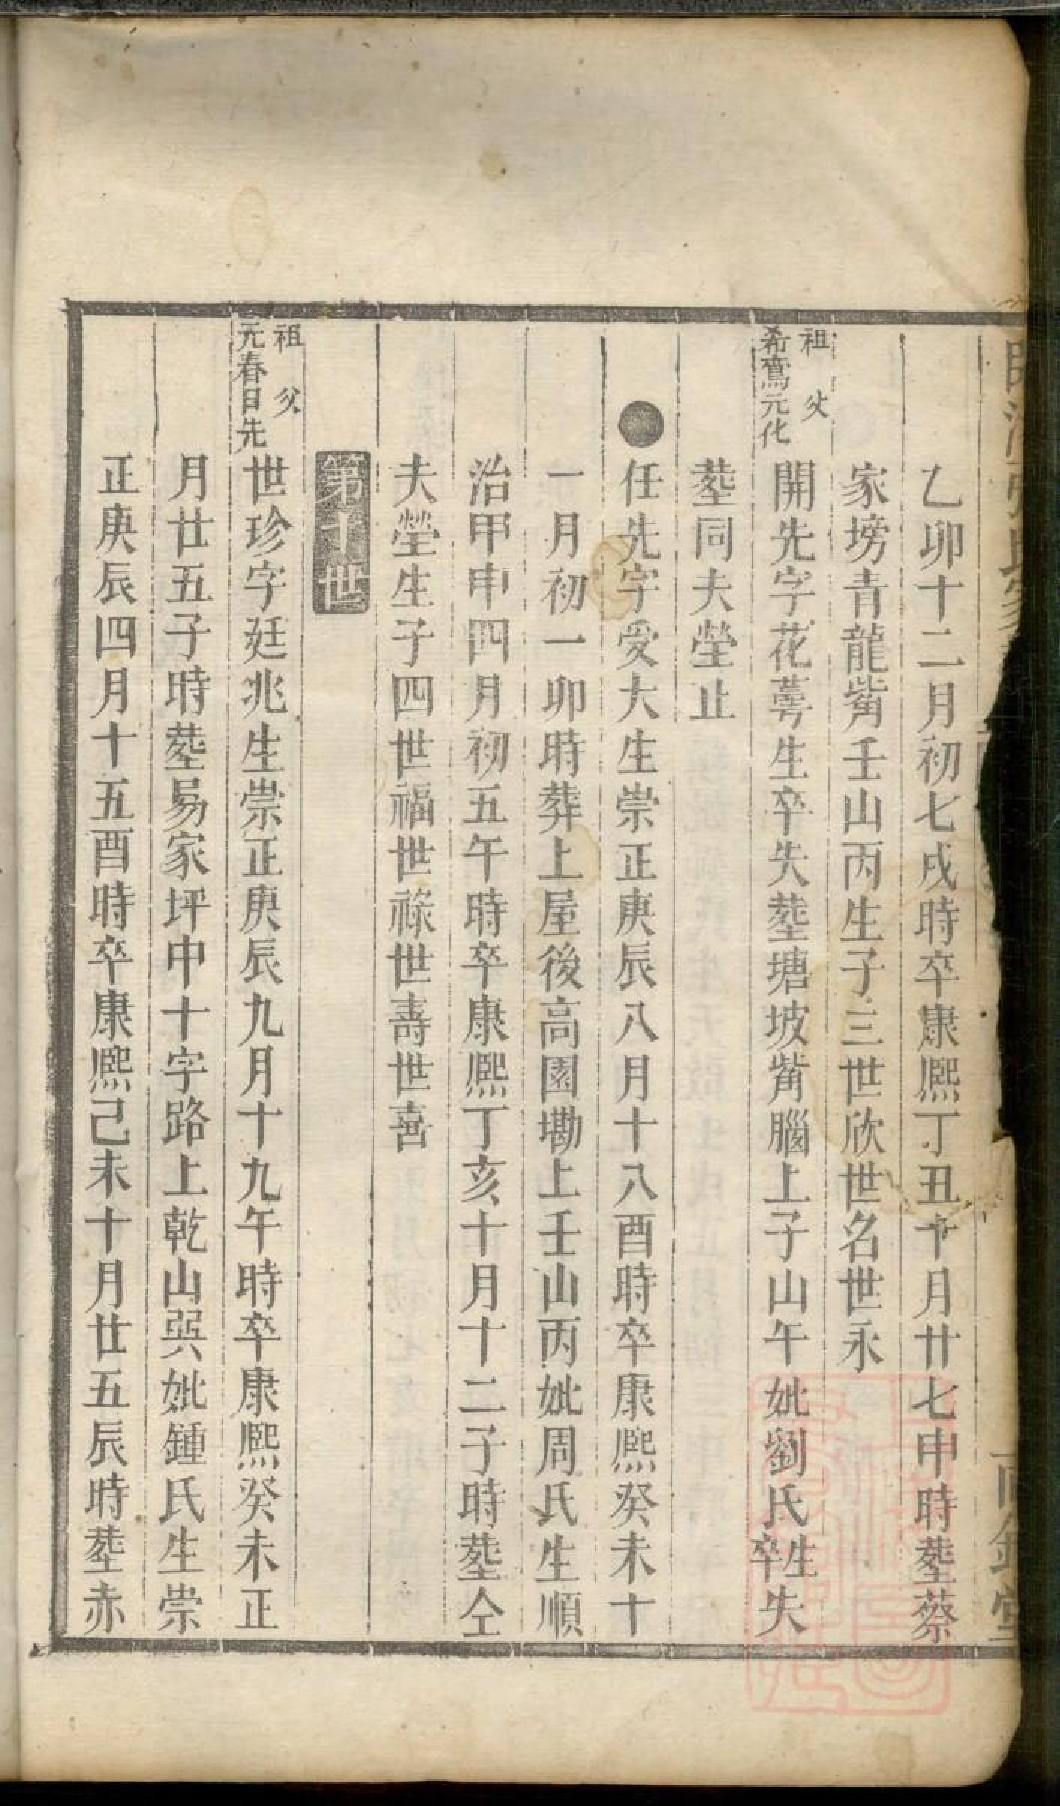 乙卯十二月初七戌時卒康熙丁丑十月廿七申時塟蔡
家塝青龍嘴壬山丙生子三世欣世名世永
祖父
希鸞元化
開先字花萼生卒失塟塘坡嘴腦上子山午妣劉氏生卒失
塟同夫塋止
任先字受大生崇正庚辰八月十八酉時卒康熙癸未十
一月初一卯時葬上屋後高園墈上壬山丙妣周氏生順
治甲申四月初五午時卒康熙丁亥十月十二子時塟仝
夫塋生子四世福世祿世壽世喜
第十世
祖父
元春日先
世珍字廷兆生崇正庚辰九月十九午時卒康熙癸未正
月廿五子時塟易家坪中十字路上乾山巽妣鍾氏生崇
正庚辰四月十五酉時卒康熙己未十月廿五辰時塟赤